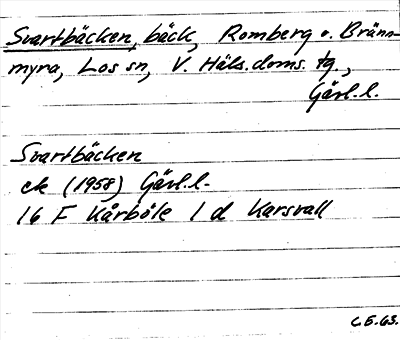 Svartbäcken, bäck, Romberg o. Bränn-
myra, Los sn, V. Häls. doms. tg.,
Gävl. l.
Svartbäcken
ek (1958) Gävl. l.
16 F Kårböle 1 d Karsvall
C.E. 63.